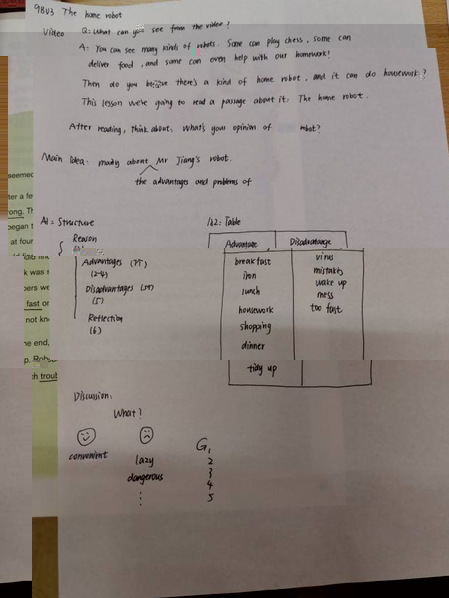 9BU3 The home robot
Video Q: What can you see from the video?
A: You can see many kinds of robots. Some can play chess, some can
deliver food, and some can even help with our homework!
Then do you believe there's a kind of home robot, and it can do housework?
This lesson we're going to read a passage about it: The home robot.
After reading, think about: What's your opinion of robot?
Main Idea: mainly about Mr Jiang's robot.
the advantages and problems of
A1: Structure
Reason
Advantages
(2-4)
Disadvantages
(5)
Reflection
(6)
A2: Table
Advantage Disadvantage
breakfast virus
iron mistakes
lunch wake up
housework mess
shopping too fast
dinner
tidy up
Discussion:
What?
convenient lazy
dangerous
G1
2
3
4
5
seemed
ter a fe
rong. Th
began t
at four
k was
fast or
not kno
he end,
ch troub